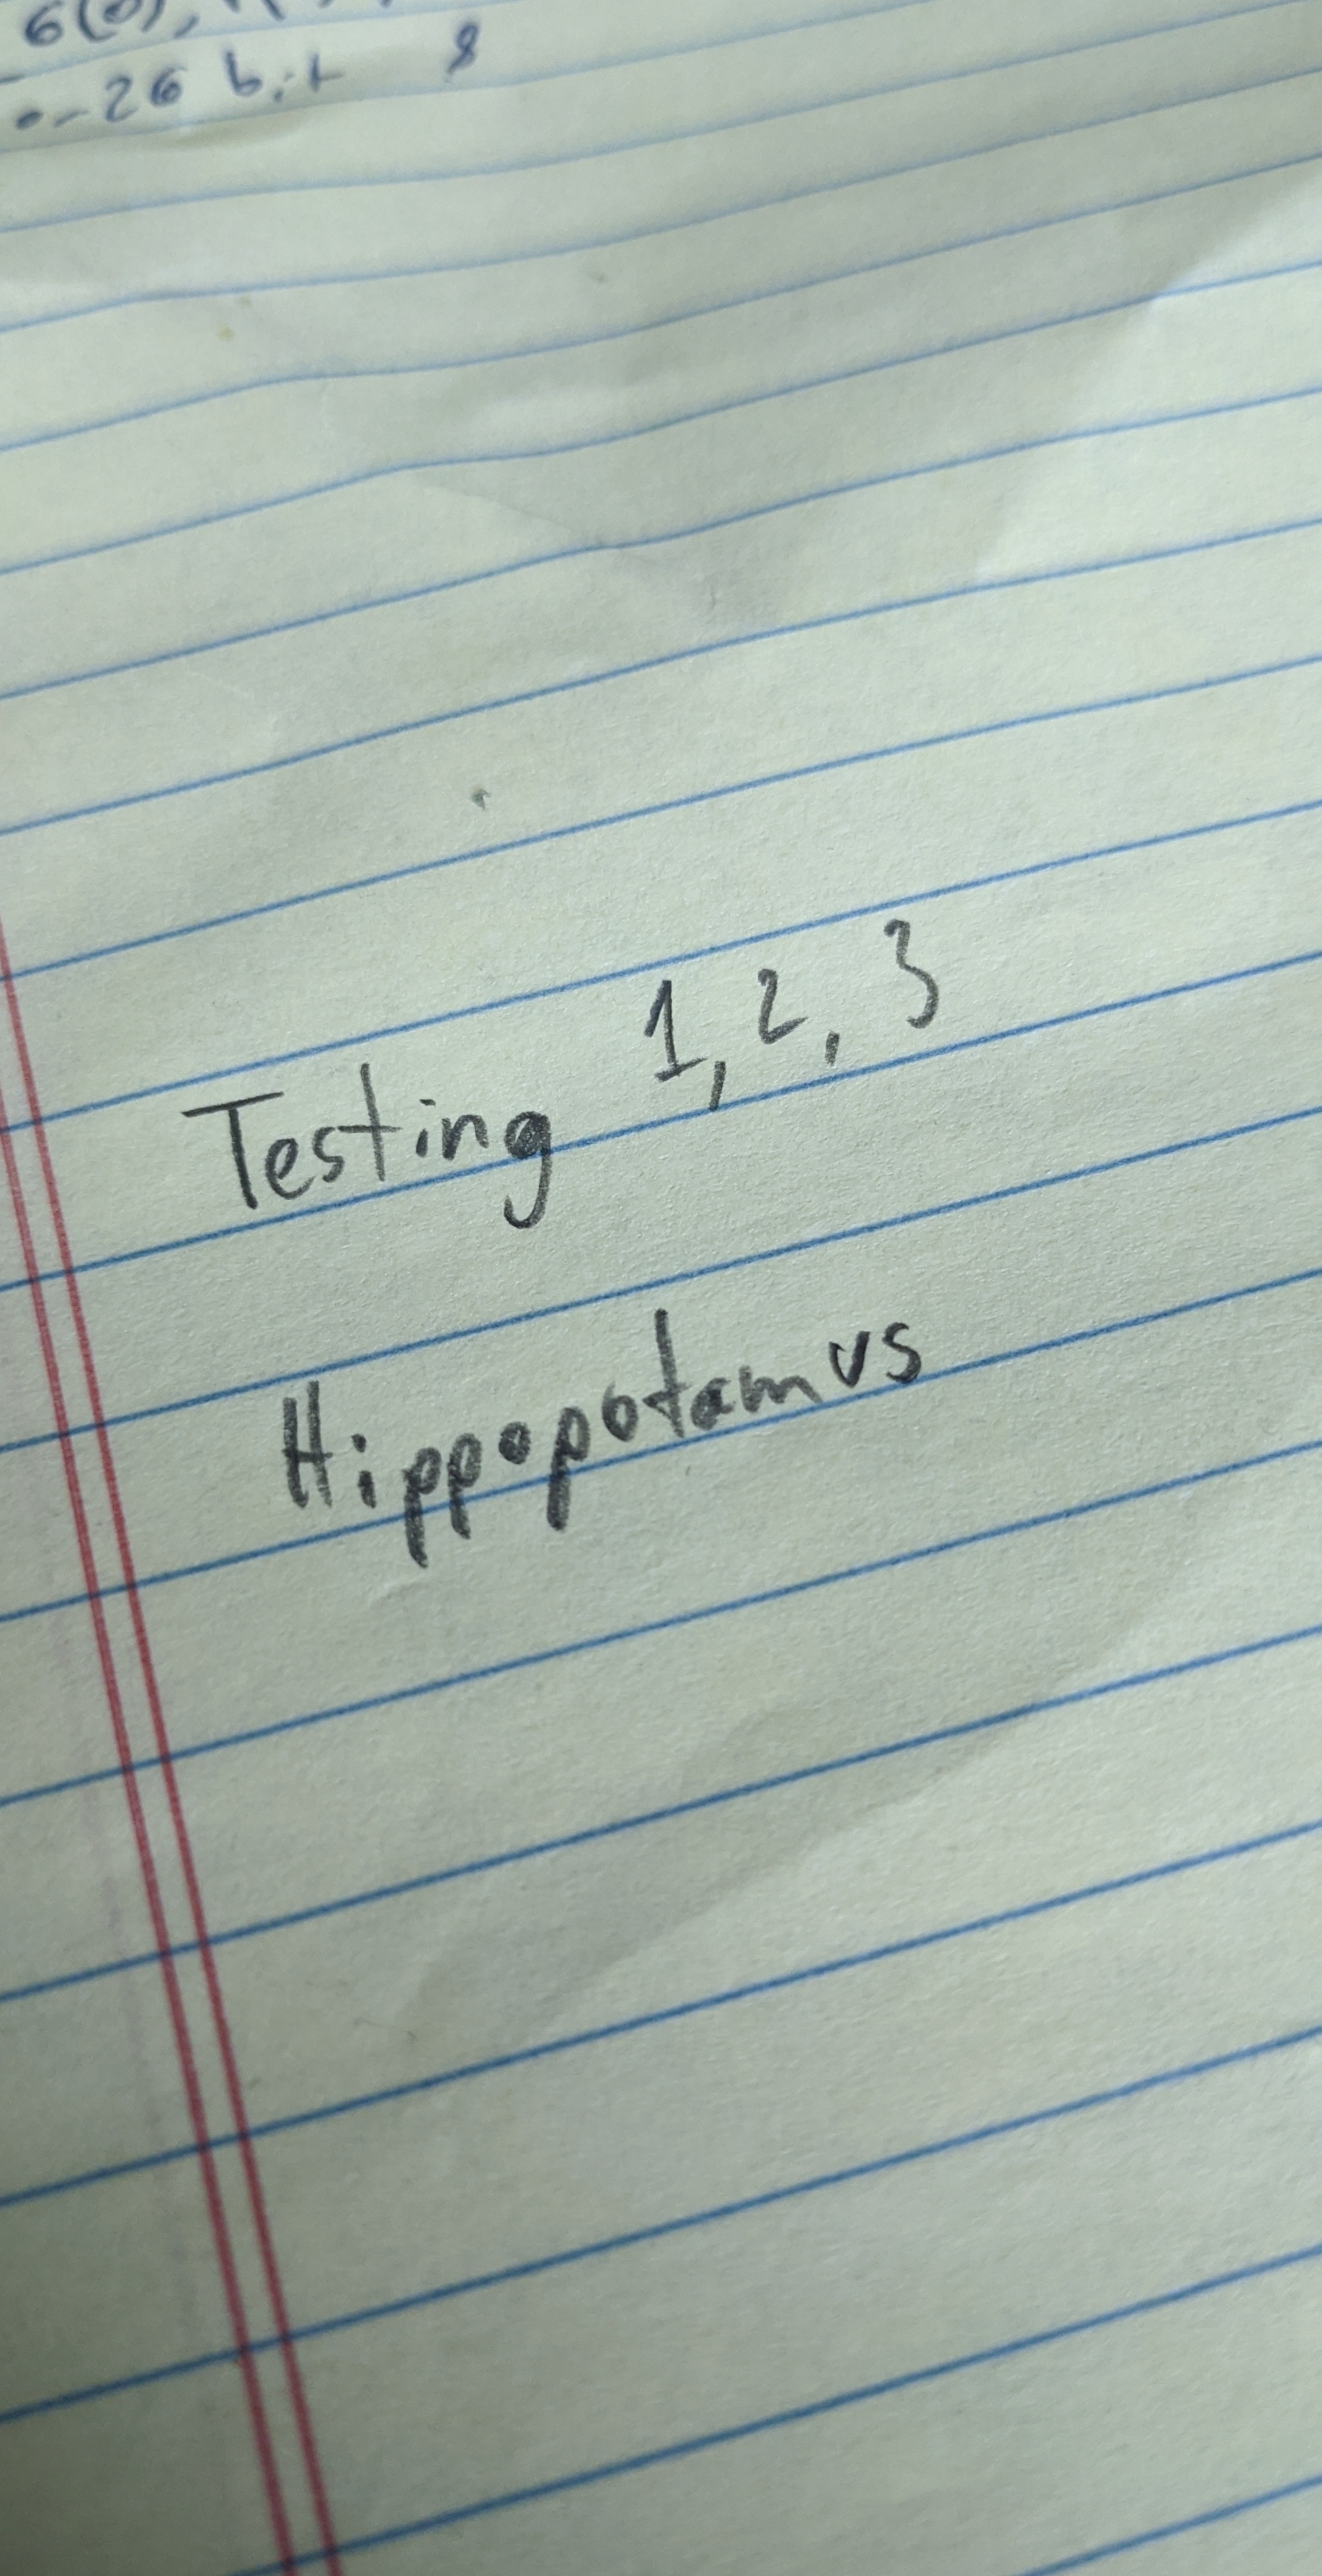 0-26 bit 8
Testing 1, 2, 3
Hippopotamus